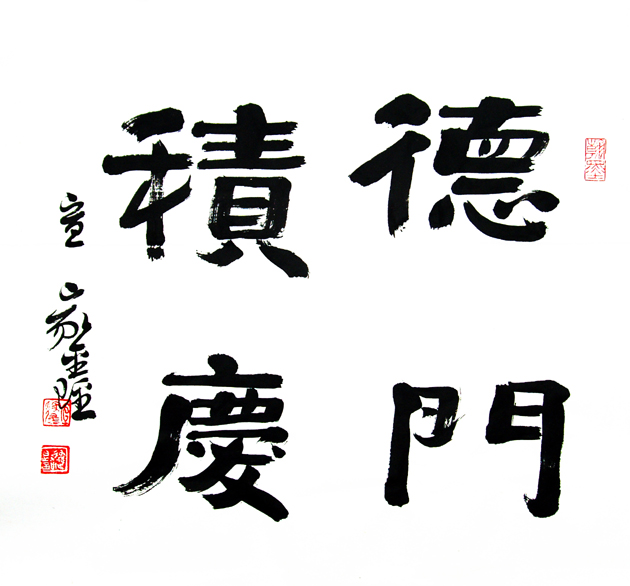 德門
積慶